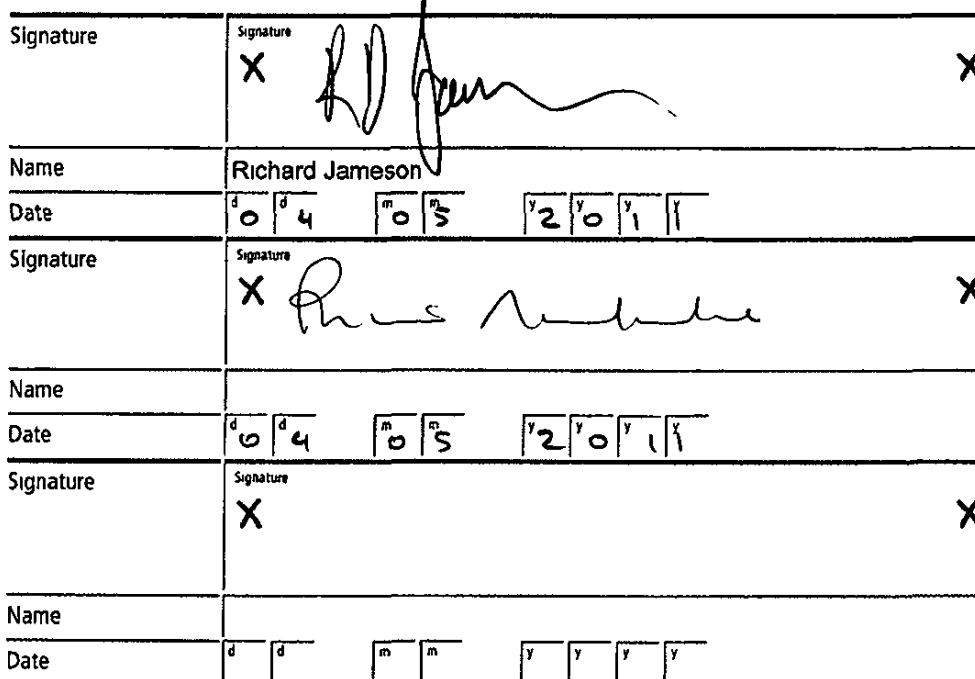 Signature
Signature
X X
R D
Name Richard Jameson
Date d 0 d 4 m 0 m 5 y 2 y 0 y 1 y 1
Signature
Signature
X X
Name
Date d 0 d 4 m 0 m 5 y 2 y 0 y 1 y 1
Signature
Signature
X X
Name
Date d d m m y y y y